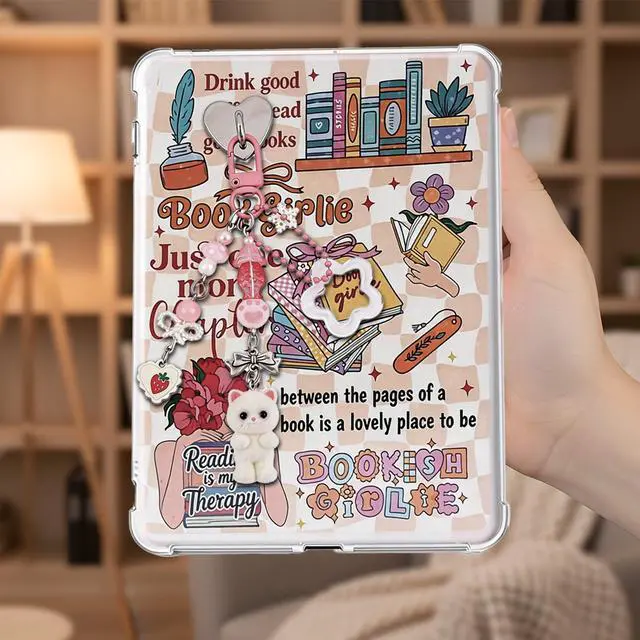 Drink good
STORIES
MAGIC
Book Girlie
Just one
more
Chapter
Book
girl
between the pages of a
book is a lovely place to be
Reading
is my
Therapy
BOOKISH
GIRLIE